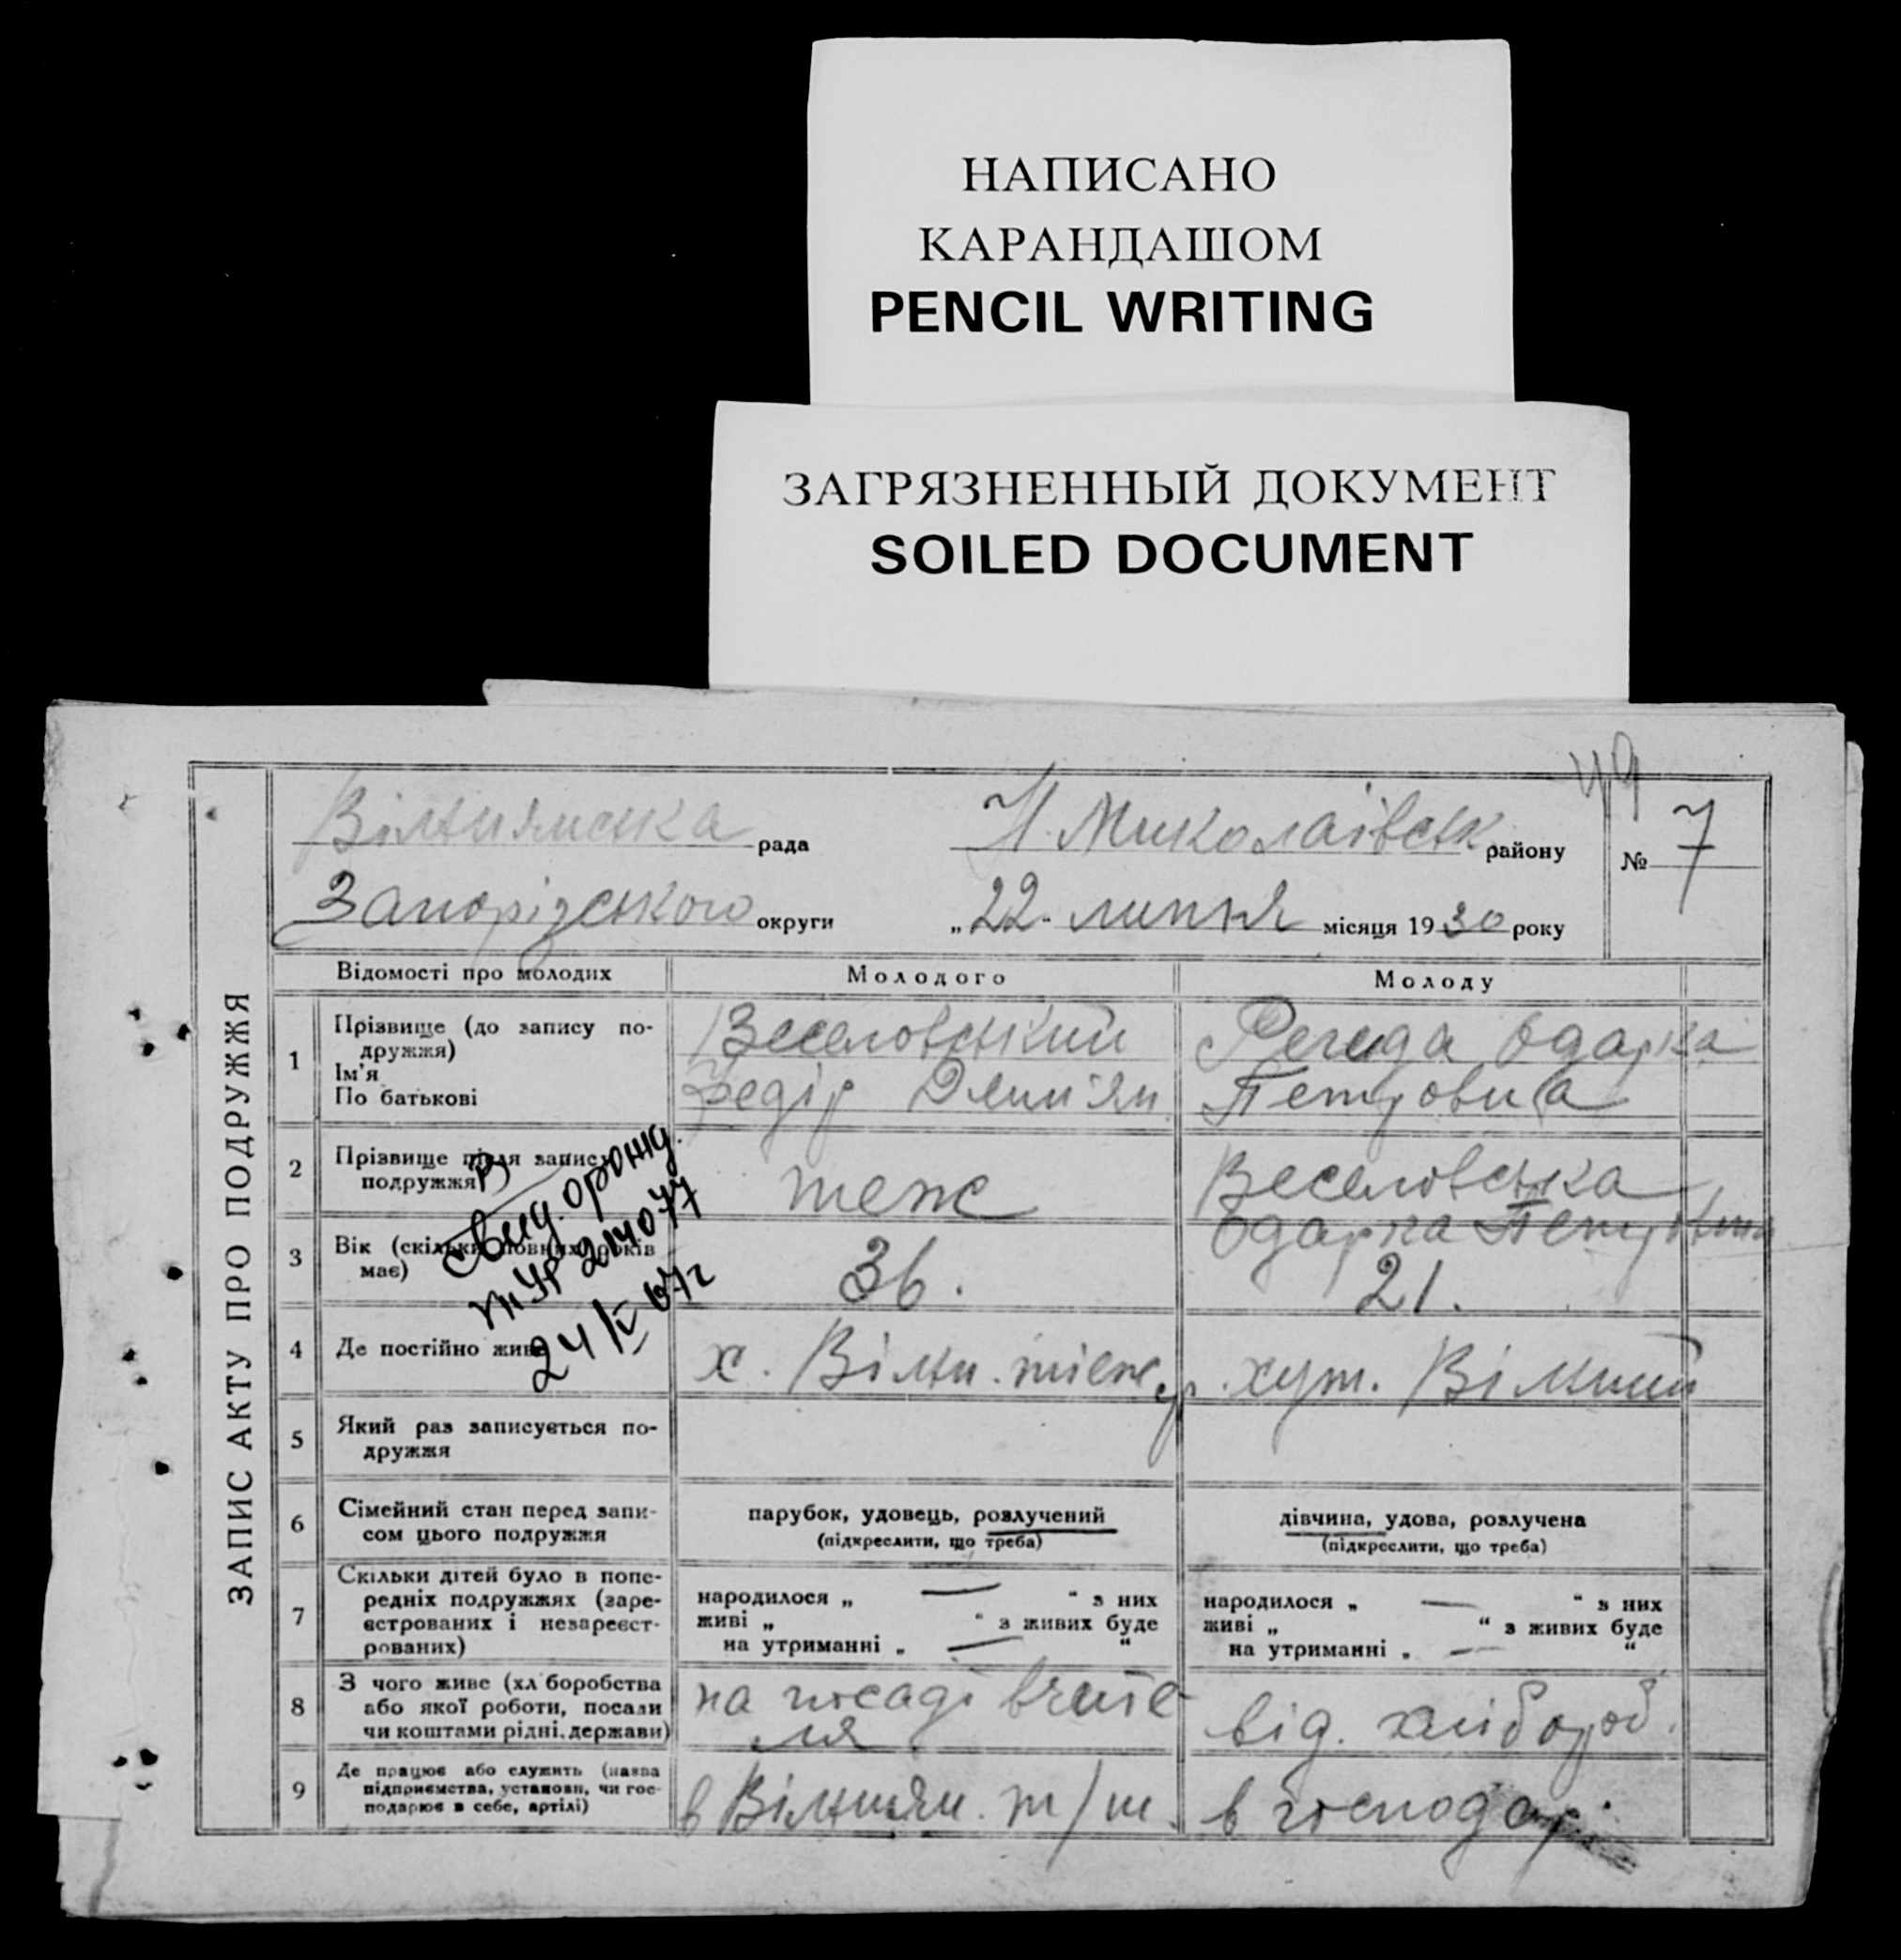 НАПИСАНО
КАРАНДАШОМ
PENCIL WRITING
ЗАГРЯЗНЕННЫЙ ДОКУМЕНТ
SOILED DOCUMENT
ЗАПИС АКТУ ПРО ПОДРУЖЖЯ
рада Н. Миколаївськ району № 7
Запорізського округи „22. липня місяця 1930 року
Відомості про молодих Молодого Молоду
1 Прізвище (до запису по-
дружжя)
Ім'я
По батькові
Веселовський
Федір Дем'ян
Одарка
Петровна
2 Прізвище після запису
подружжя
теж
Веселовська
Одарка Петровна
3 Вік (скільки повних років
має)
36. 21.
24/IV 67г
4 Де постійно живе
х. Вільн. хут. Вільний
5 Який раз записується по-
дружжя
6 Сімейний стан перед запи-
сом цього подружжя
парубок, удовець, розлучений
(підкреслити, що треба)
дівчина, удова, розлучена
(підкреслити, що треба)
7 Скільки дітей було в попе-
редніх подружжях (заре-
єстрованих і незареєст-
рованих)
народилося „ — “ з них
живі „ “ з живих буде
на утриманні „ — “
народилося „ — “ з них
живі „ “ з живих буде
на утриманні „ — “
8 З чого живе (хліборобства
або якої роботи, посади
чи коштами рідні, держави)
на посаді вчите-
ля
від. хлібороб.
9 Де працює або служить (назва
підприємства, установи, чи гос-
подарює в себе, артілі)
в Вільнян. т/ш. в господар.